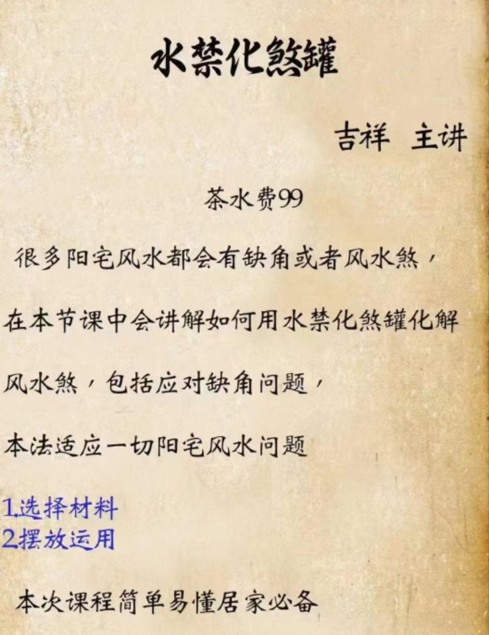 水禁化煞罐
吉祥 主讲
茶水费99
很多阳宅风水都会有缺角或者风水煞，
在本节课中会讲解如何用水禁化煞罐化解
风水煞，包括应对缺角问题，
本法适应一切阳宅风水问题
1.选择材料
2.摆放运用
本次课程简单易懂居家必备